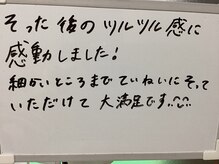 そった後のツルツル感に
感動しました!
細かいところまでていねいにそって
いただけて 大満足です